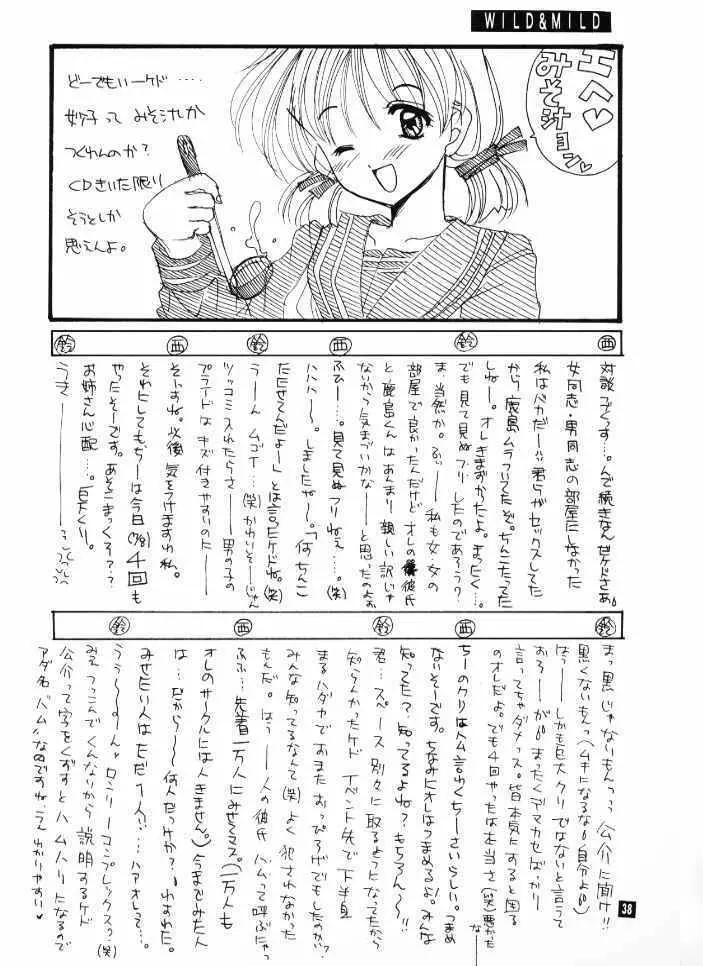 WILD&MILD
エヘ♡
みそ汁ョン♡
どーでもいーケド‥‥
妙子って みそ汁しか
つくれんのか?
CDきいた限り
そうとしか
思えんよ。
西
鈴
西
鈴
西
鈴
対談でぃっす…。んで続きなんだケドさあ。
女同志・男同志の部屋にしなかった
私はバカだー 君らがセックスしてた
から鹿島ムラついてたぞ。ちんこたってた
しねー。オレきまずかったよ。まったく…。
でも見て見ぬフリしたのであろう?
ま、当然か。ふぃ―― 私も女女の
部屋で良かったんだけど オレの彼氏
と鹿島くんはあんまり親しい訳じゃ
ないから気まずいかな――と思ったのよぉ
ふひー…。見て見ぬフリねぇ……。(笑)
ハハハ〜〜。しましたね〜。「何ちんこ
たたせてんだよー」とは言ったケドね。(笑)
うーん ムゴイー…(笑)かわいそーじゃん
ツッコミ入れたらさ―― 男の子の
プライドは キズ付きやすいのだ――
そーすね。以後 気をつけますわ私。
それにしてもちーは今日(11/8)4回も
やったそーです。あそこまっくろ??
お姉さん心配…。巨大くり。
うさ――――
鈴
西
鈴
西
鈴
まっ黒じゃないもんっっ 公介に聞け!!
黒くないもんっ(ムキになるな 自分よ)
はっ――しかも巨大クリではないと言って
おろ――が まったくデマカセばっかり
言ってちゃダメっス。皆本気にすると困る
のオレだよ。でも4回やったは本当さ(笑)悪かったな――
ちーのクリはトム言わくちーさいらしい。つまめ
ないそーです。ちなみにオレはつまめるよ!みんな
知ってた?知ってるよね?もちろん〜〜!!
君… スペース別々に取るようになってたから
知らんかったケド イベント先で下半身
まるハダカでおまたおっぴろげでもしたのかい?
みんな知ってるなんて(笑)よく犯されなかった
もんだ。はぅ――人の彼氏 ハムって呼ぶにゃっ
ふふ… 先着一万人にみせてマス。(一万人も
オレのサークルには人きません。)今までみた人
は…だから〜〜何人だっけか?わすれた。
みせたい人はただ1人!!…ハァオレって…。
うう〜〜。ん、ロンリーコンプレックスう…(笑)
みえ つっこんでくんないから説明するケド
公介って字をくずすとハムハリになるので
アダ名"ハム"なのですね。うん わかりやすい♥
38